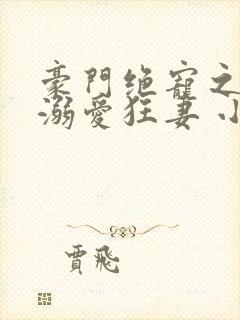 豪門绝寵之
溺愛狂妻小
賈飛